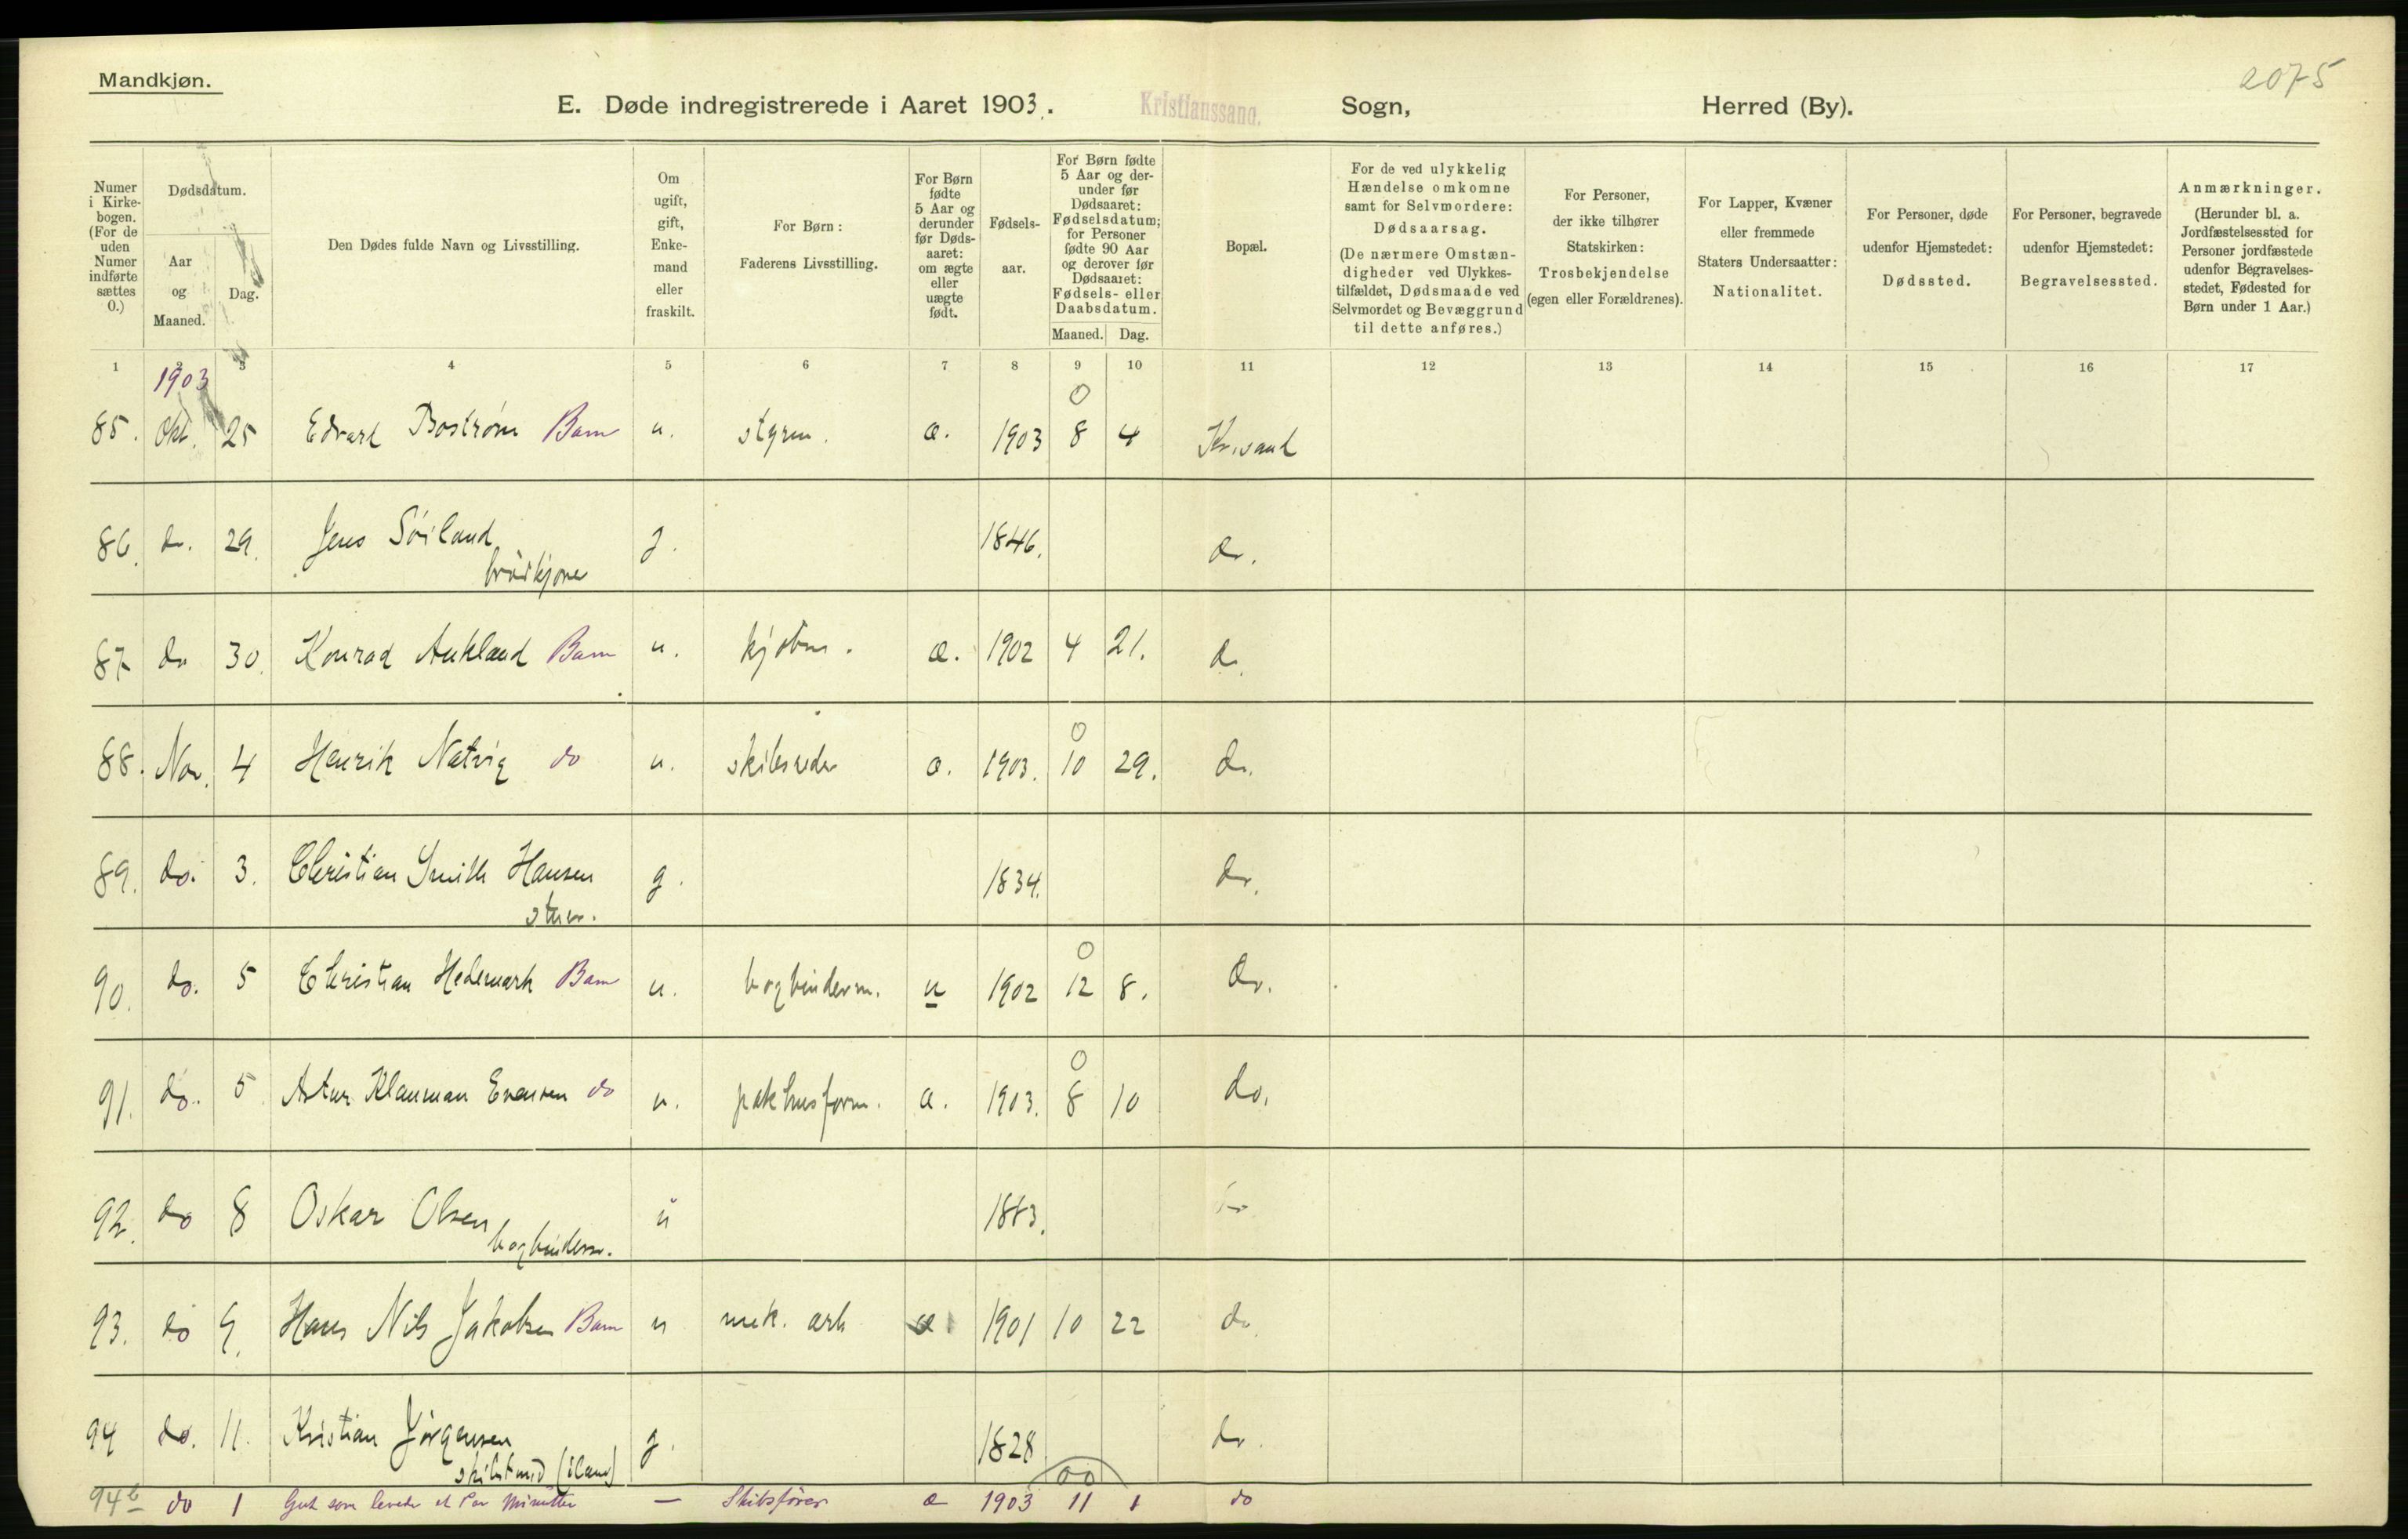 Mandkjøn.
2075
E. Døde indregistrerede i Aaret 1903. Kristianssand. Sogn, Herred (By).
Numer i Kirke-bogen. (For de uden Numer indførte sættes 0.)
Dødsdatum.
Aar og Maaned.
Dag.
Den Dødes fulde Navn og Livsstilling.
Om ugift, gift, Enke-mand eller fraskilt.
For Børn: Faderens Livsstilling.
For Børn fødte 5 Aar og derunder før Døds-aaret: om ægte eller uægte født.
Fødsels-aar.
For Børn fødte 5 Aar og der-under før Dødsaaret: Fødselsdatum; for Personer fødte 90 Aar og derover før Dødsaaret: Fødsels- eller Daabsdatum.
Maaned. Dag.
Bopæl.
For de ved ulykkelig Hændelse omkomne samt for Selvmordere: Dødsaarsag. (De nærmere Omstæn-digheder ved Ulykkes-tilfældet, Dødsmaade ved Selvmordet og Bevæggrund til dette anføres.)
For Personer, der ikke tilhører Statskirken: Trosbekjendelse (egen eller Forældrenes).
For Lapper, Kvæner eller fremmede Staters Undersaatter: Nationalitet.
For Personer, døde udenfor Hjemstedet: Dødssted.
For Personer, begravede udenfor Hjemstedet: Begravelsessted.
Anmærkninger. (Herunder bl. a. Jordfæstelsessted for Personer jordfæstede udenfor Begravelses-stedet, Fødested for Børn under 1 Aar.)
1 2 3 4 5 6 7 8 9 10 11 12 13 14 15 16 17
1903
0
85. Okt. 25 Edvard Bostrøm Barn u. styrm. æ. 1903 8 4 Kr.sand
86. do. 29. Jens Söiland g. 1846. do.
87 do 30. Konrad Aukland Barn u. kjøbm. æ. 1902 4 21. do.
0
88. Nov. 4 Henrik Natvig do u. skibsreder æ. 1903. 10 29. do.
89. do. 3. Christian Smith Hansen g. 1834. do.
0
90. do. 5 Christian Hedemark Barn u. bogbinderm. u 1902 12 8. do.
0
91. do. 5 Artur Klauman Evensen do u. pakhusform. æ. 1903. 8 10 do.
92. do 8 Oskar Olsen u 1883. do
bogbinderm.
93. do 9. Hans Nils Jakobsen Barn u mek. arb æ 1901 10 22 do.
94 do. 11. Kristian Jörgensen g. 1828 do.
00
94b do 1 Gut som levede et Par Minutter — Skibsfører æ 1903 11 1 do